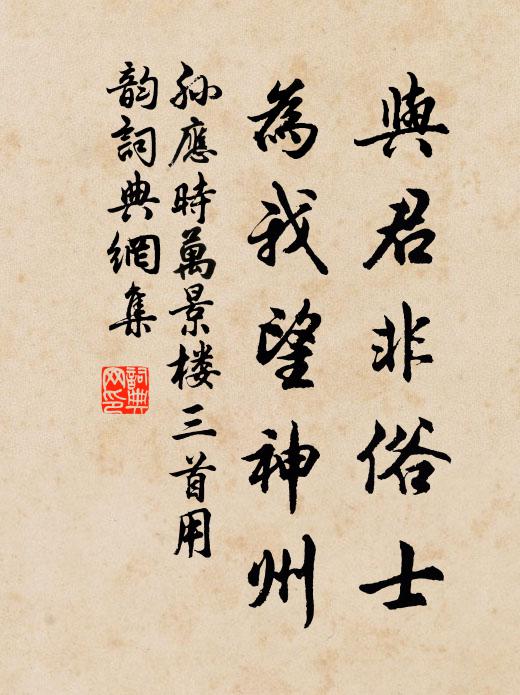 與君非俗士
為我望神州
孫應時萬景楼三首用
韵詞典網集
詞典網印